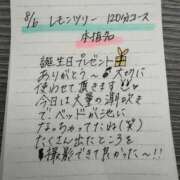 8/6 レモンツリー 120分コース
本指名
誕生日プレゼント
ありがとう〜 大切に
使わせて頂きます
今日は大量の潮吹き
で、ベッドが池に
なっちゃってたね(笑)
たくさん出たところを
撮影できて良かった〜!!